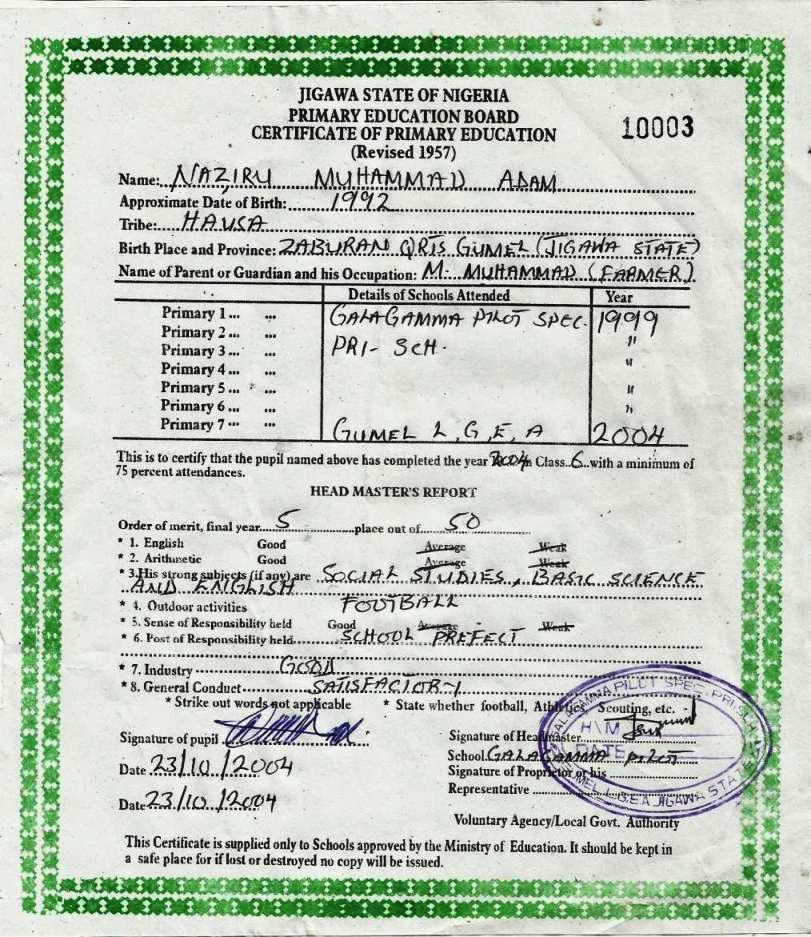 JIGAWA STATE OF NIGERIA
PRIMARY EDUCATION BOARD
CERTIFICATE OF PRIMARY EDUCATION
(Revised 1957)
10003
Name: NAZIRU MUHAMMAD ADAM
Approximate Date of Birth: 1992
Tribe: HAUSA
Birth Place and Province: ZABURAN QRTS GUMEL (JIGAWA STATE)
Name of Parent or Guardian and his Occupation: M. MUHAMMAD (FARMER)
Details of Schools Attended Year
Primary 1 ... ... GALAGAMMA PILOT SPEC. 1999
Primary 2 ... ... "
Primary 3 ... ... PRI- SCH.
Primary 4 ... ... "
Primary 5 ... ... "
Primary 6 ... ... "
Primary 7 ... ... GUMEL L.G.E.A 2004
This is to certify that the pupil named above has completed the year 2004 in Class..6..with a minimum of
75 percent attendances.
HEAD MASTER'S REPORT
Order of merit, final year 5 place out of 50
* 1. English Good Average Weak
* 2. Arithmetic Good Average Weak
* 3. His strong subjects (if any) are SOCIAL STUDIES, BASIC SCIENCE
AND ENGLISH
* 4. Outdoor activities FOOTBALL
* 5. Sense of Responsibility held Good Average Weak
* 6. Post of Responsibility held SCHOOL PREFECT
* 7. Industry GOOD
* 8. General Conduct SATISFACTORY
* Strike out words not applicable * State whether football, Athletics Scouting, etc.
Signature of pupil
Signature of Headmaster
School GALAGAMMA PILOT
Date 23/10/2004
Signature of Proprietor or his
Representative
Date 23/10/2004
Voluntary Agency/Local Govt. Authority
GALAGAMMA PILOT SPEC. PRI. SCH.
H/M
DATE
GUMEL L.G.E.A JIGAWA STATE
This Certificate is supplied only to Schools approved by the Ministry of Education. It should be kept in
a safe place for if lost or destroyed no copy will be issued.